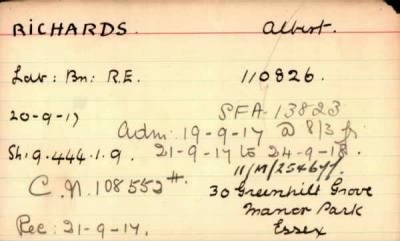 RICHARDS. Albert.
Lab: Bn: R.E. 110826.
20-9-17 SFA-13823
Adm: 19-9-17 @ 8/3 fr.
Sh: 9.444.1.9. 21-9-17 to 24-9-18.
11/M/254677.
C.N. 108552#. 30 Greenhill Grove
Manor Park
Rec: 21-9-17. Essex